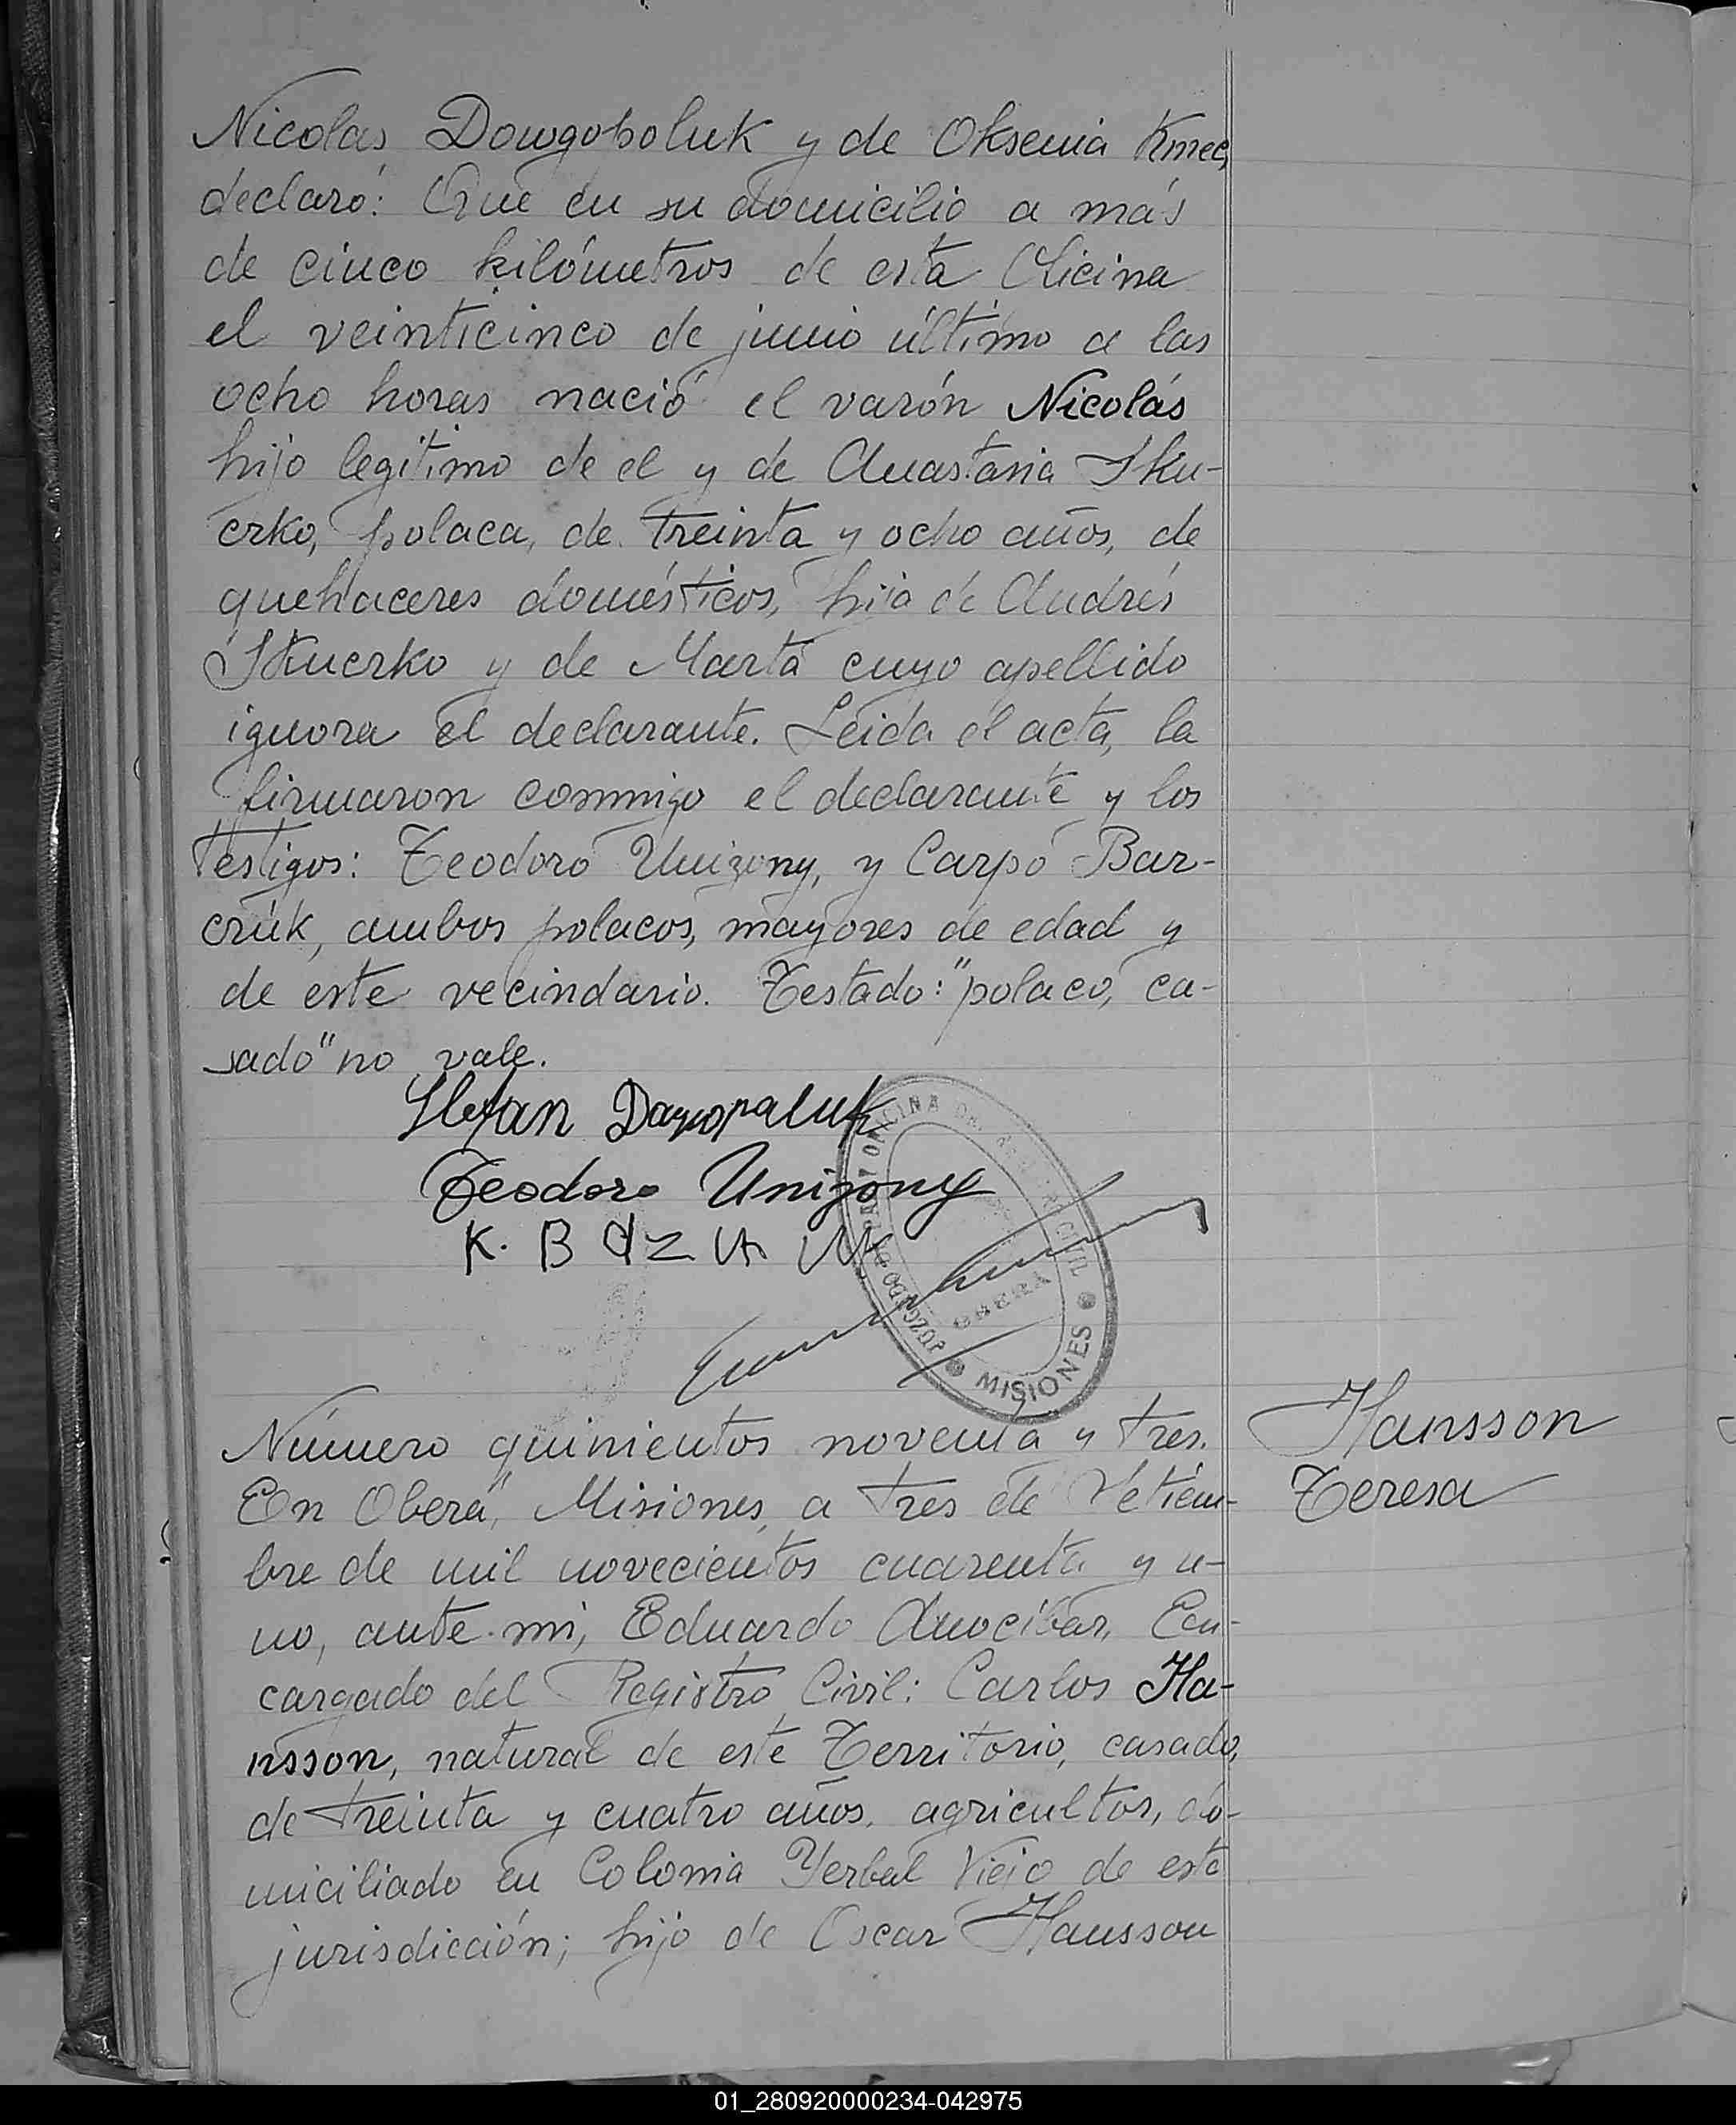 Nicolás Dowgopoluk y de Oksenia Kmec,
declaró: Que en su domicilio a más
de cinco kilómetros de esta Oficina
el veinticinco de junio último a las
ocho horas nació el varón Nicolás
hijo legítimo de el y de Anastasia Sku-
erko, polaca, de treinta y ocho años, de
quehaceres domésticos, hija de Andrés
Skuerko y de Marta cuyo apellido
ignora el declarante. Leida el acta, la
firmaron conmigo el declarante y los
testigos: Teodoro Unizony, y Carpo Bar-
cruk, ambos polacos, mayores de edad y
de este vecindario. Testado: "polaco, ca-
sado" no vale.
Stefan
Teodoro Unizony
K.
JUZGADO DE PAZ Y OFICINA DEL REGISTRO CIVIL
OBERÁ
MISIONES
Número quinientos noventa y tres.
En Oberá, Misiones, a tres de Setiem-
bre de mil novecientos cuarenta y u-
no, ante mi, Eduardo Anocibar, En-
cargado del Registro Civil: Carlos Ha-
nsson, natural de este Territorio, casado,
de treinta y cuatro años, agricultor, do-
miciliado en Colonia Yerbal Viejo de esta
jurisdicción; hijo de Oscar Hansson
Hansson
Teresa
01_280920000234-042975